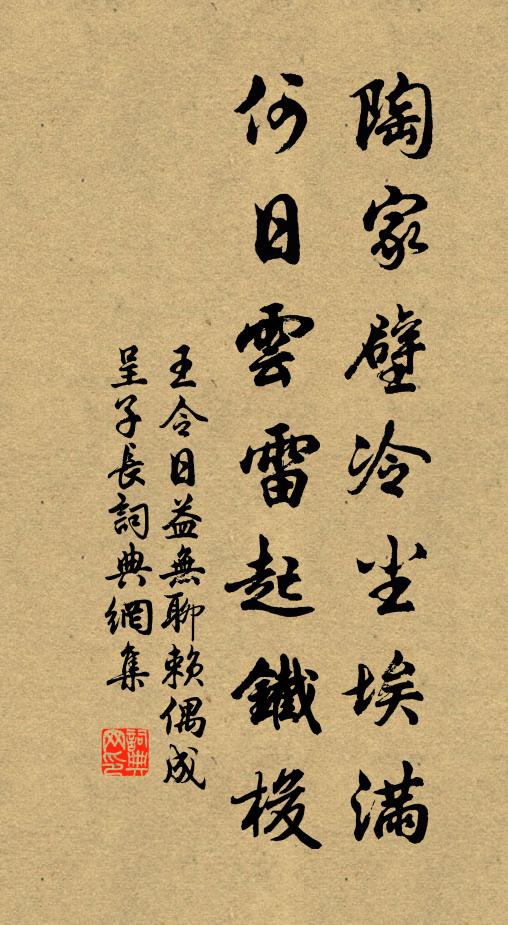 陶家壁冷尘埃滿
何日雲雷起鐵梭
王令日益無聊賴偶成
呈子長詞典網集
詞典
网印